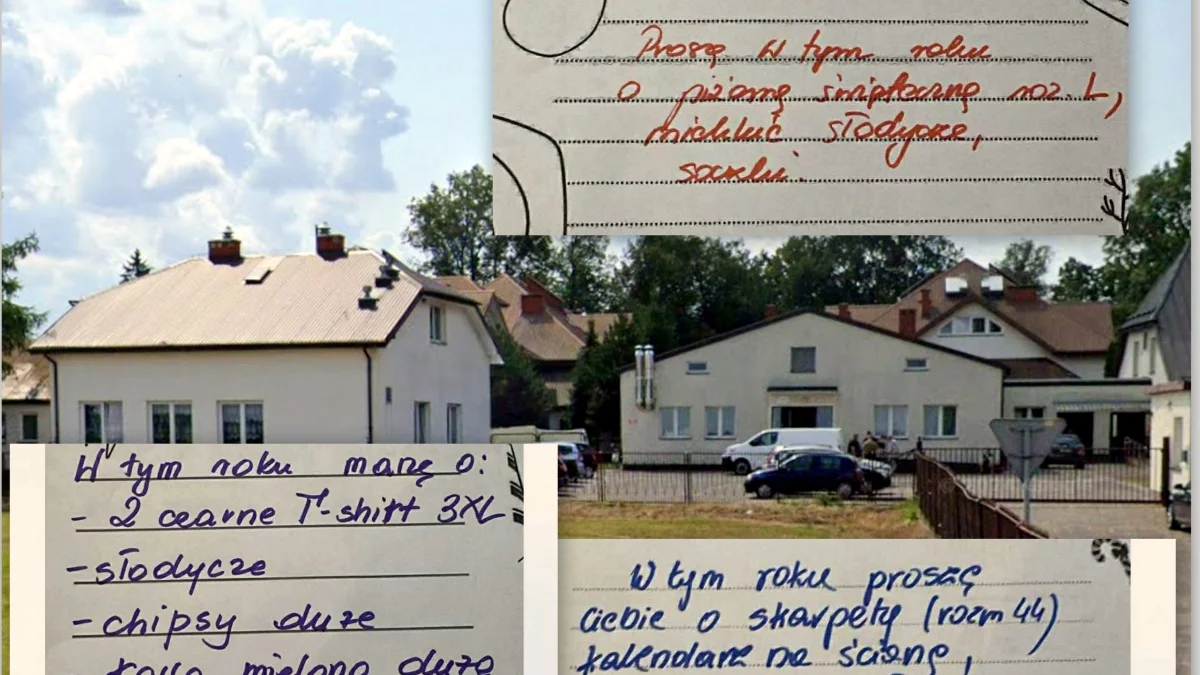 Proszę w tym roku
o piżamę świąteczną roz. L,
miękkie słodycze,
soczki.
W tym roku marzę o:
- 2 czarne T-shirt 3XL
- słodycze
- chipsy duże
kawa mielona duża
W tym roku proszę
Ciebie o skarpety (rozm 44)
kalendarz na ścianę,